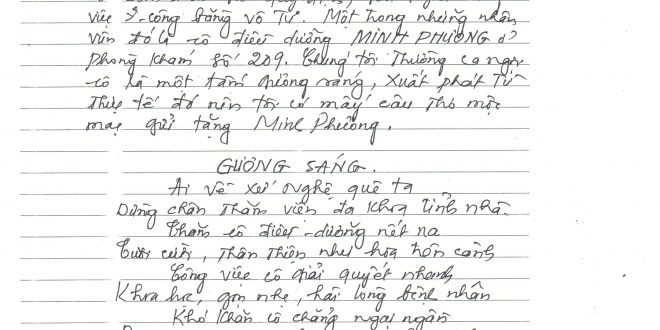 việc I-công bằng vô tư. Một trong những nhân
viên đó là cô điều dưỡng MINH PHƯƠNG ở
Phòng khám số 209. Chúng tôi thường ca ngợi
cô là một tấm gương sáng, xuất phát từ
thực tế đó nên tôi có mấy câu thơ mộc
mạc gửi tặng Minh Phương.
GƯƠNG SÁNG.
Ai về xứ nghệ quê ta
Dừng chân thăm viện đa khoa tỉnh nhà.
Thăm cô điều-dưỡng nết na
Tươi cười, thân thiện như hoa trên cành
Công việc cô giải quyết nhanh
Khoa học, gọn nhẹ, hài lòng bệnh nhân
Khó khăn cô chẳng ngại ngần